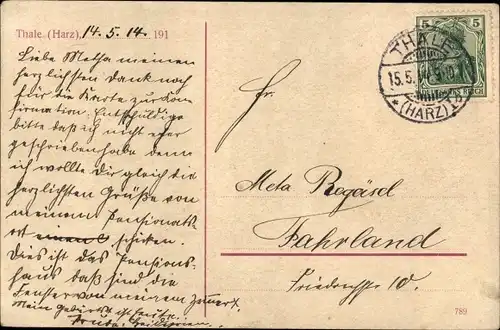 Thale (Harz), 14.5.14. 191
Liebe Metha meinen
herzlichsten Dank noch
für die Karte zur Kon
firmation. Entschuldige
bitte daß ich nicht eher
geschrieben habe denn
ich wollte dir gleich die
herzlichsten Grüße von
meinem Pensionats
ort einen schicken.
Dies ist das Pensions-
haus daß sind die
Fenster von meinem
Mein Geburtstag ist heute.
5
THALE
15.5.14
* (HARZ)
Fr.
Meta
Fahrland
Friedrichstr 10.
789